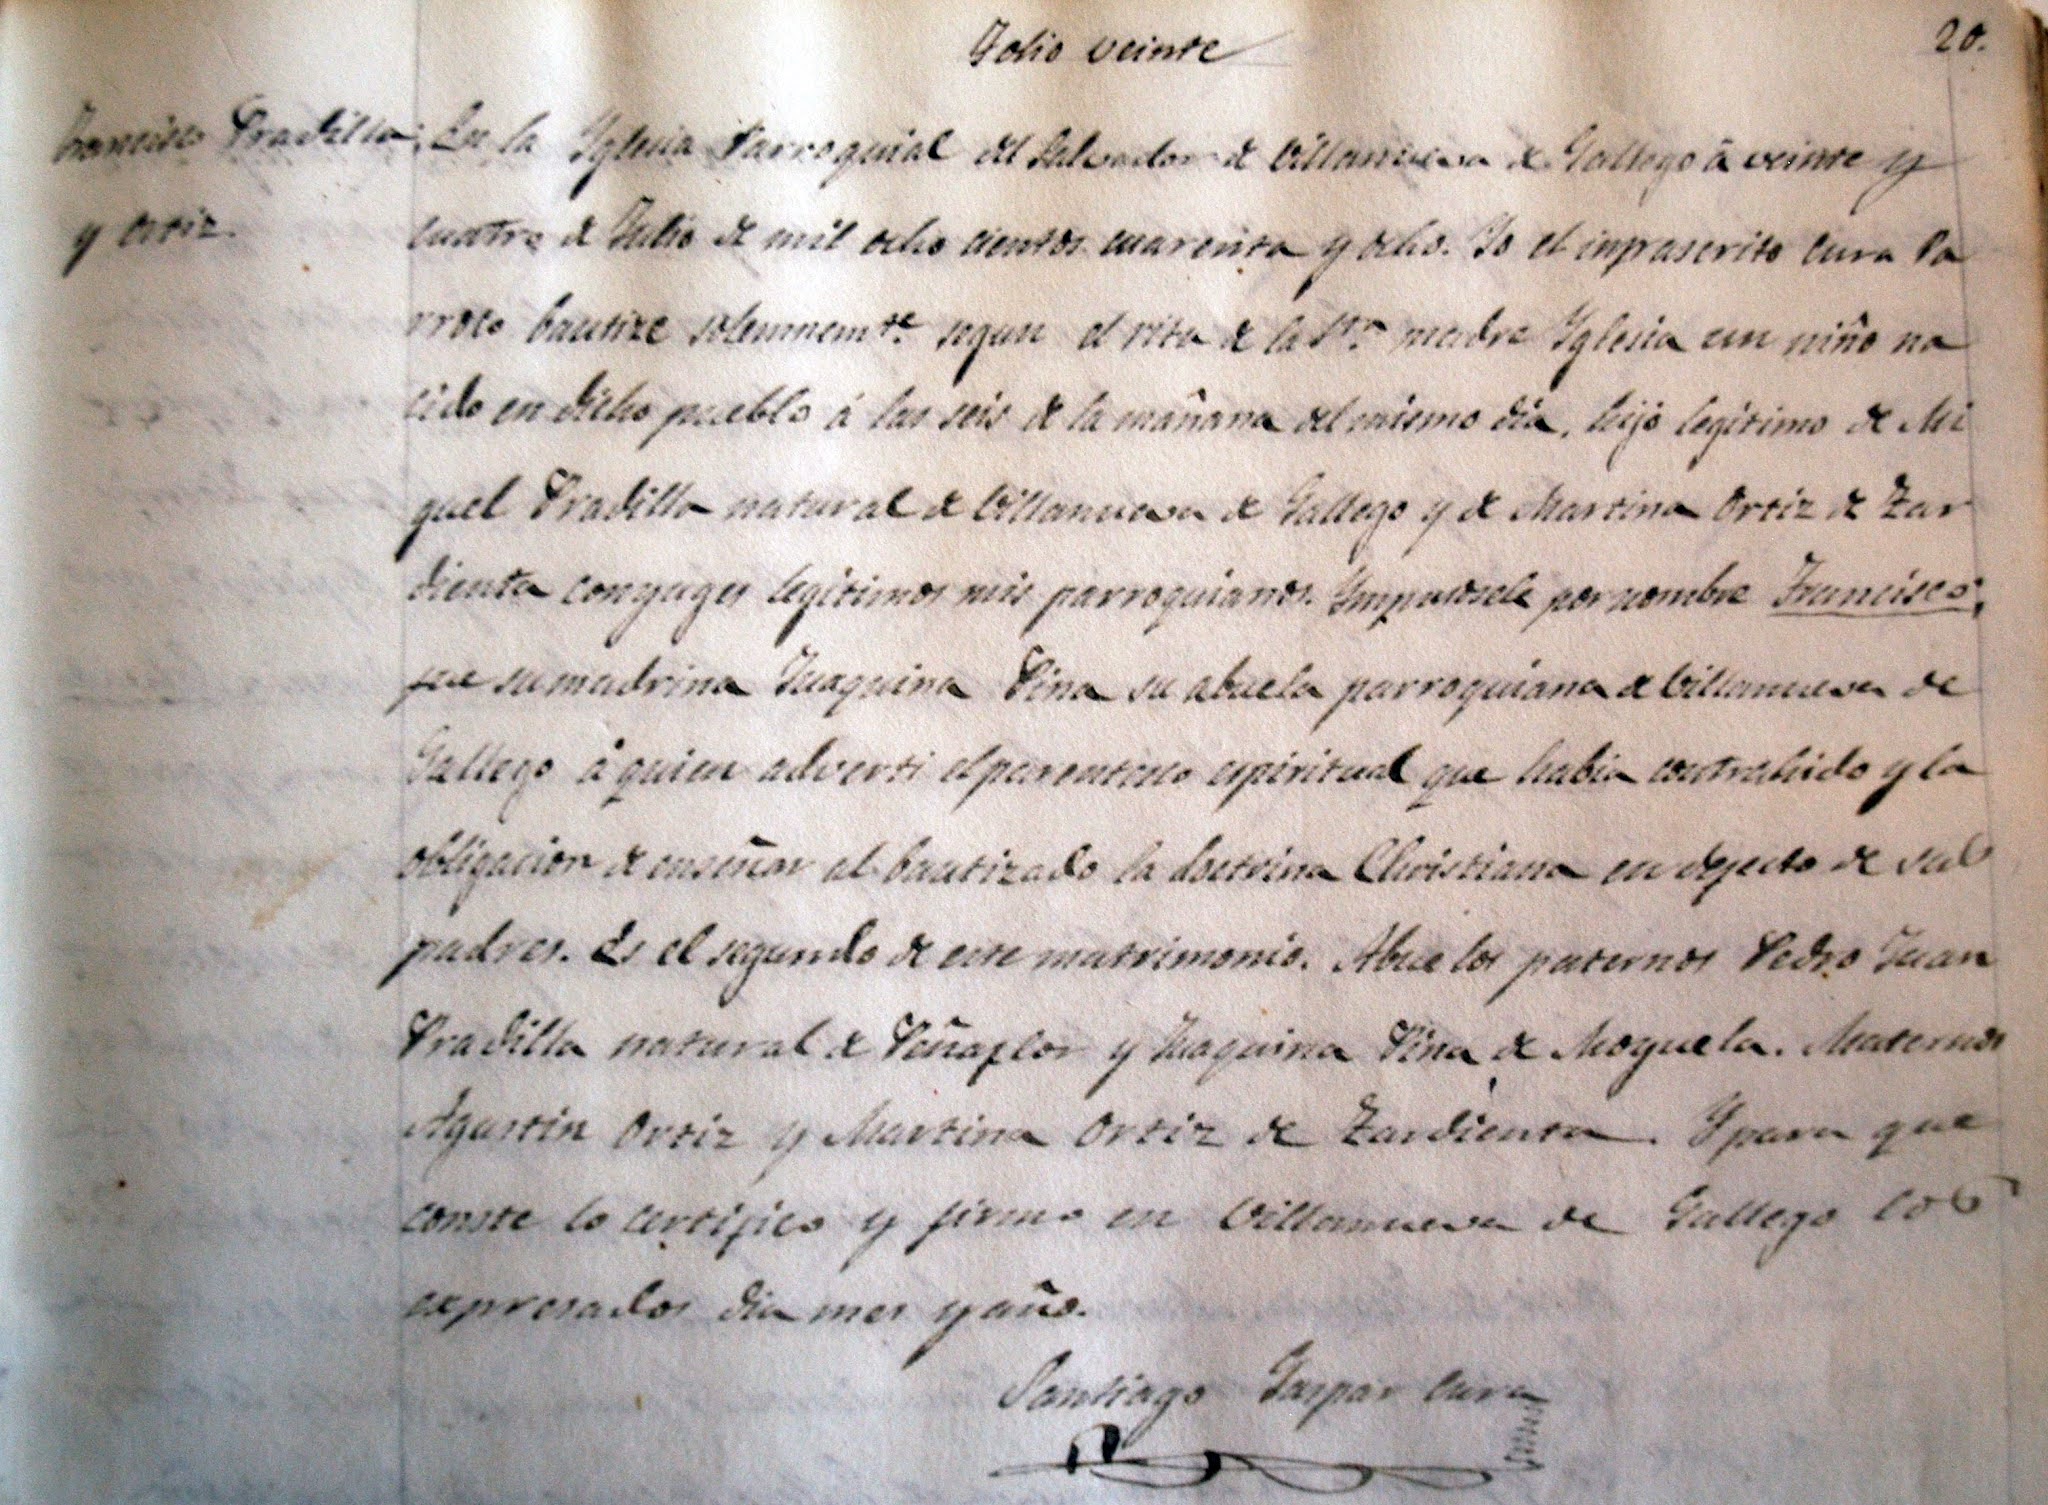 Folio veinte
20.
Francisco Pradilla
y Ortiz.
En la Iglesia Parroquial del Salvador de Villanueva de Gallego á veinte y
cuatro de Julio de mil ocho cientos cuarenta y ocho. Yo el infrascrito Cura Pa
rroco bautize solemnemte. segun el rito de la Sta. madre Iglesia un niño na
cido en dicho pueblo á las seis de la mañana del mismo dia, hijo legitimo de Mi
guel Pradilla natural de Villanueva de Gallego y de Martina Ortiz de Zar
dienta conyuges legitimos mis parroquianos. Impusosele por nombre Francisco,
fue su madrina Juaquina Pina su abuela parroquiana de Villanueva de
Gallego á quien adverti el parentesco espiritual que habia contrahido y la
obligacion de enseñar al bautizado la doctrina Christiana en defecto de sus
padres. Es el segundo de este matrimonio. Abuelos paternos Pedro Juan
Pradilla natural de Peñaflor y Juaquina Pina de Moyuela. Maternos
Agustin Ortiz y Martina Ortiz de Zardienta. Y para que
conste lo certifico y firmo en Villanueva de Gallego los
expresados dia mes y año.
Santiago Gaspar Cura